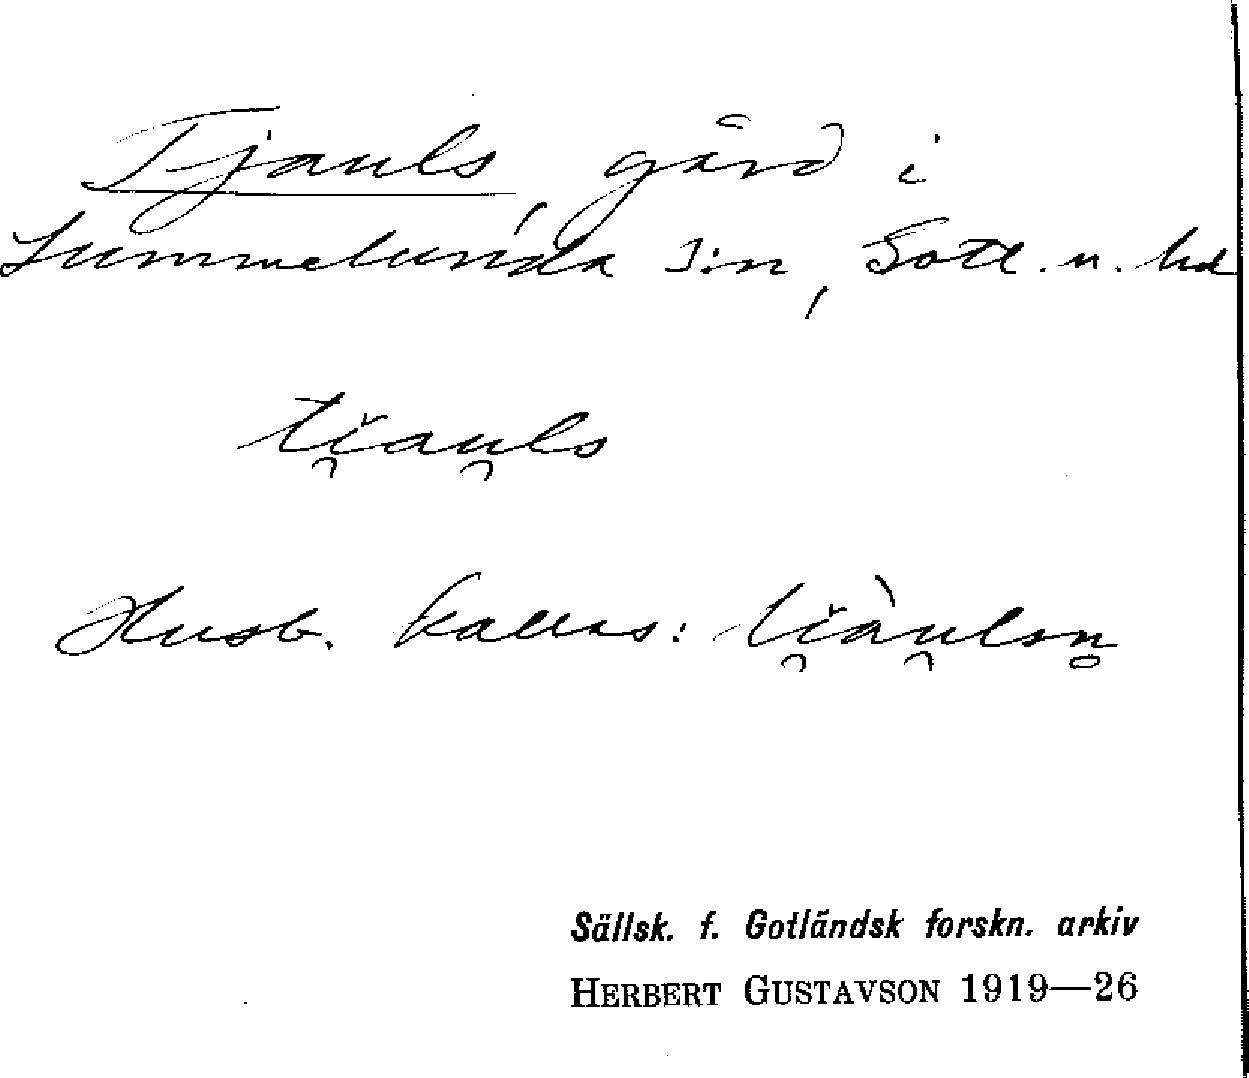 Tjauls gård i
Lummelunda s:n, Gotl. n. hd
ti̯au̯ls
Husb. kallas: ti̯àu̯lsn̥
Sällsk. f. Gotländsk forskn. arkiv
HERBERT GUSTAVSON 1919—26